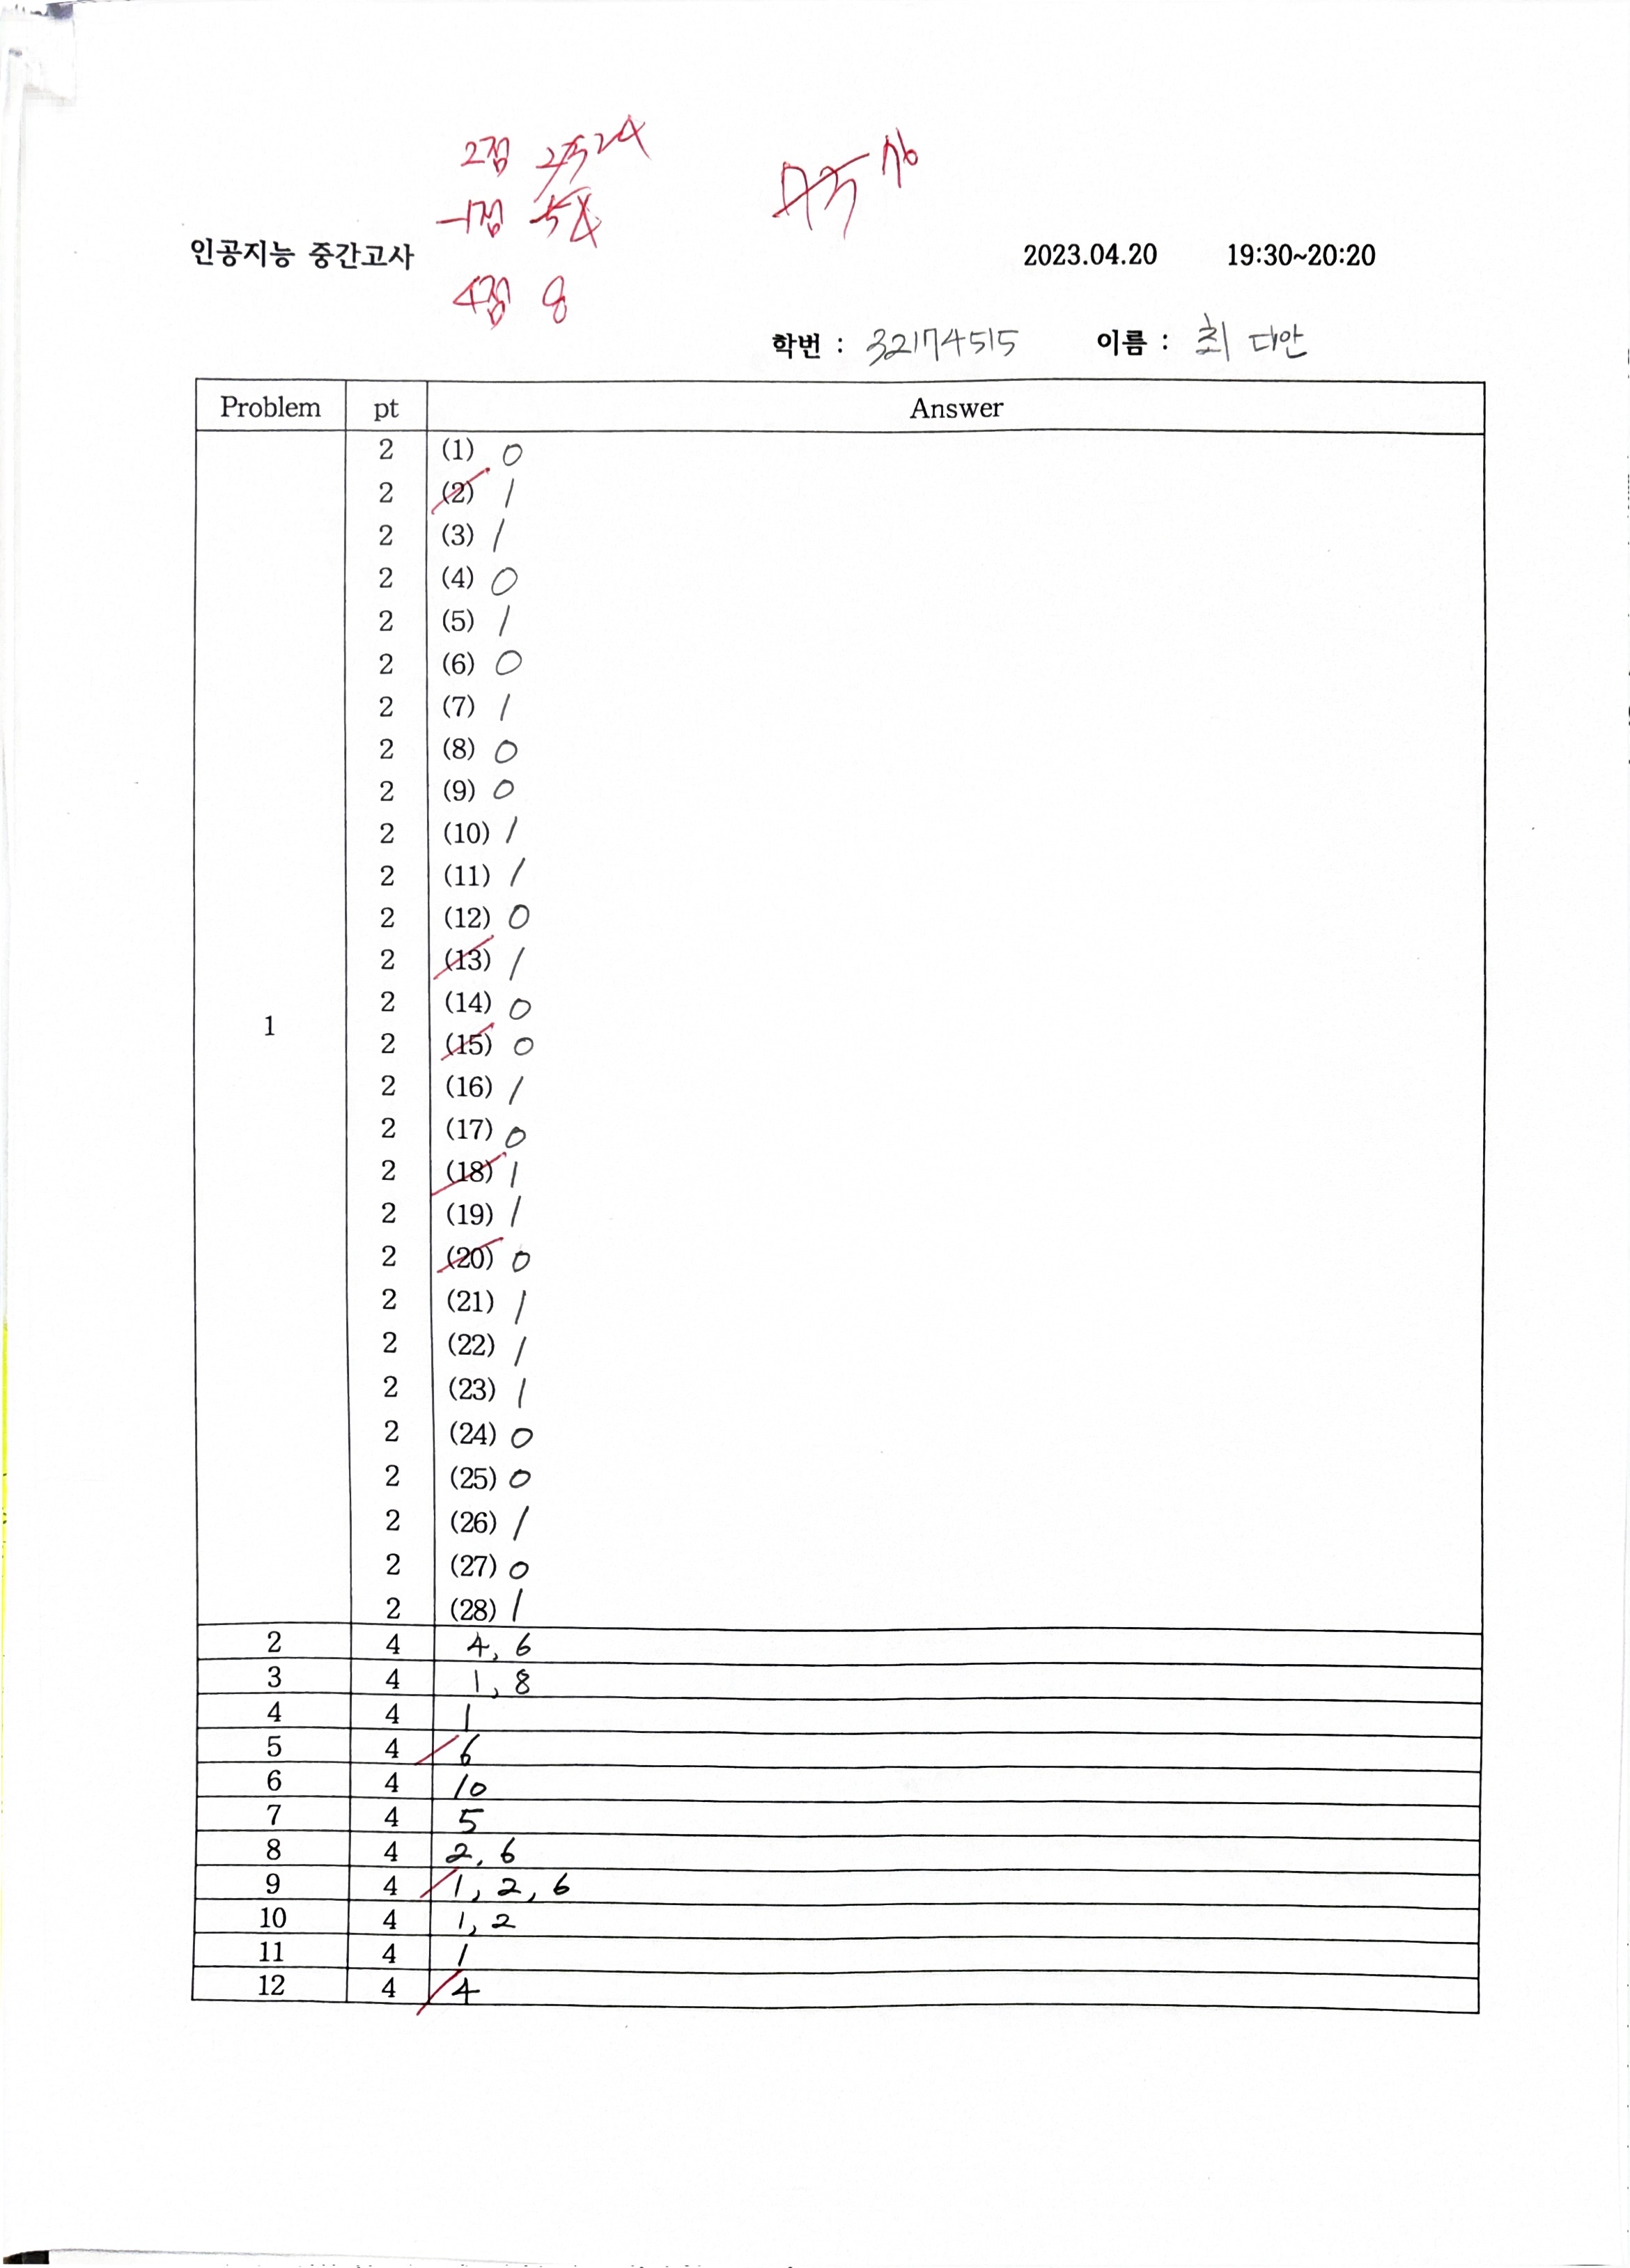 2점 24
-1점 4
76
인공지능 중간고사 2023.04.20 19:30~20:20
4점 8
학번 : 32174515 이름 : 최 다안
Problem pt Answer
2 (1) 0
2 (2) 1
2 (3) 1
2 (4) 0
2 (5) 1
2 (6) 0
2 (7) 1
2 (8) 0
2 (9) 0
2 (10) 1
2 (11) 1
2 (12) 0
2 (13) 1
2 (14) 0
1
2 (15) 0
2 (16) 1
2 (17) 0
2 (18) 1
2 (19) 1
2 (20) 0
2 (21) 1
2 (22) 1
2 (23) 1
2 (24) 0
2 (25) 0
2 (26) 1
2 (27) 0
2 (28) 1
2 4 4, 6
3 4 1, 8
4 4 1
5 4 6
6 4 10
7 4 5
8 4 2, 6
9 4 1, 2, 6
10 4 1, 2
11 4 1
12 4 4